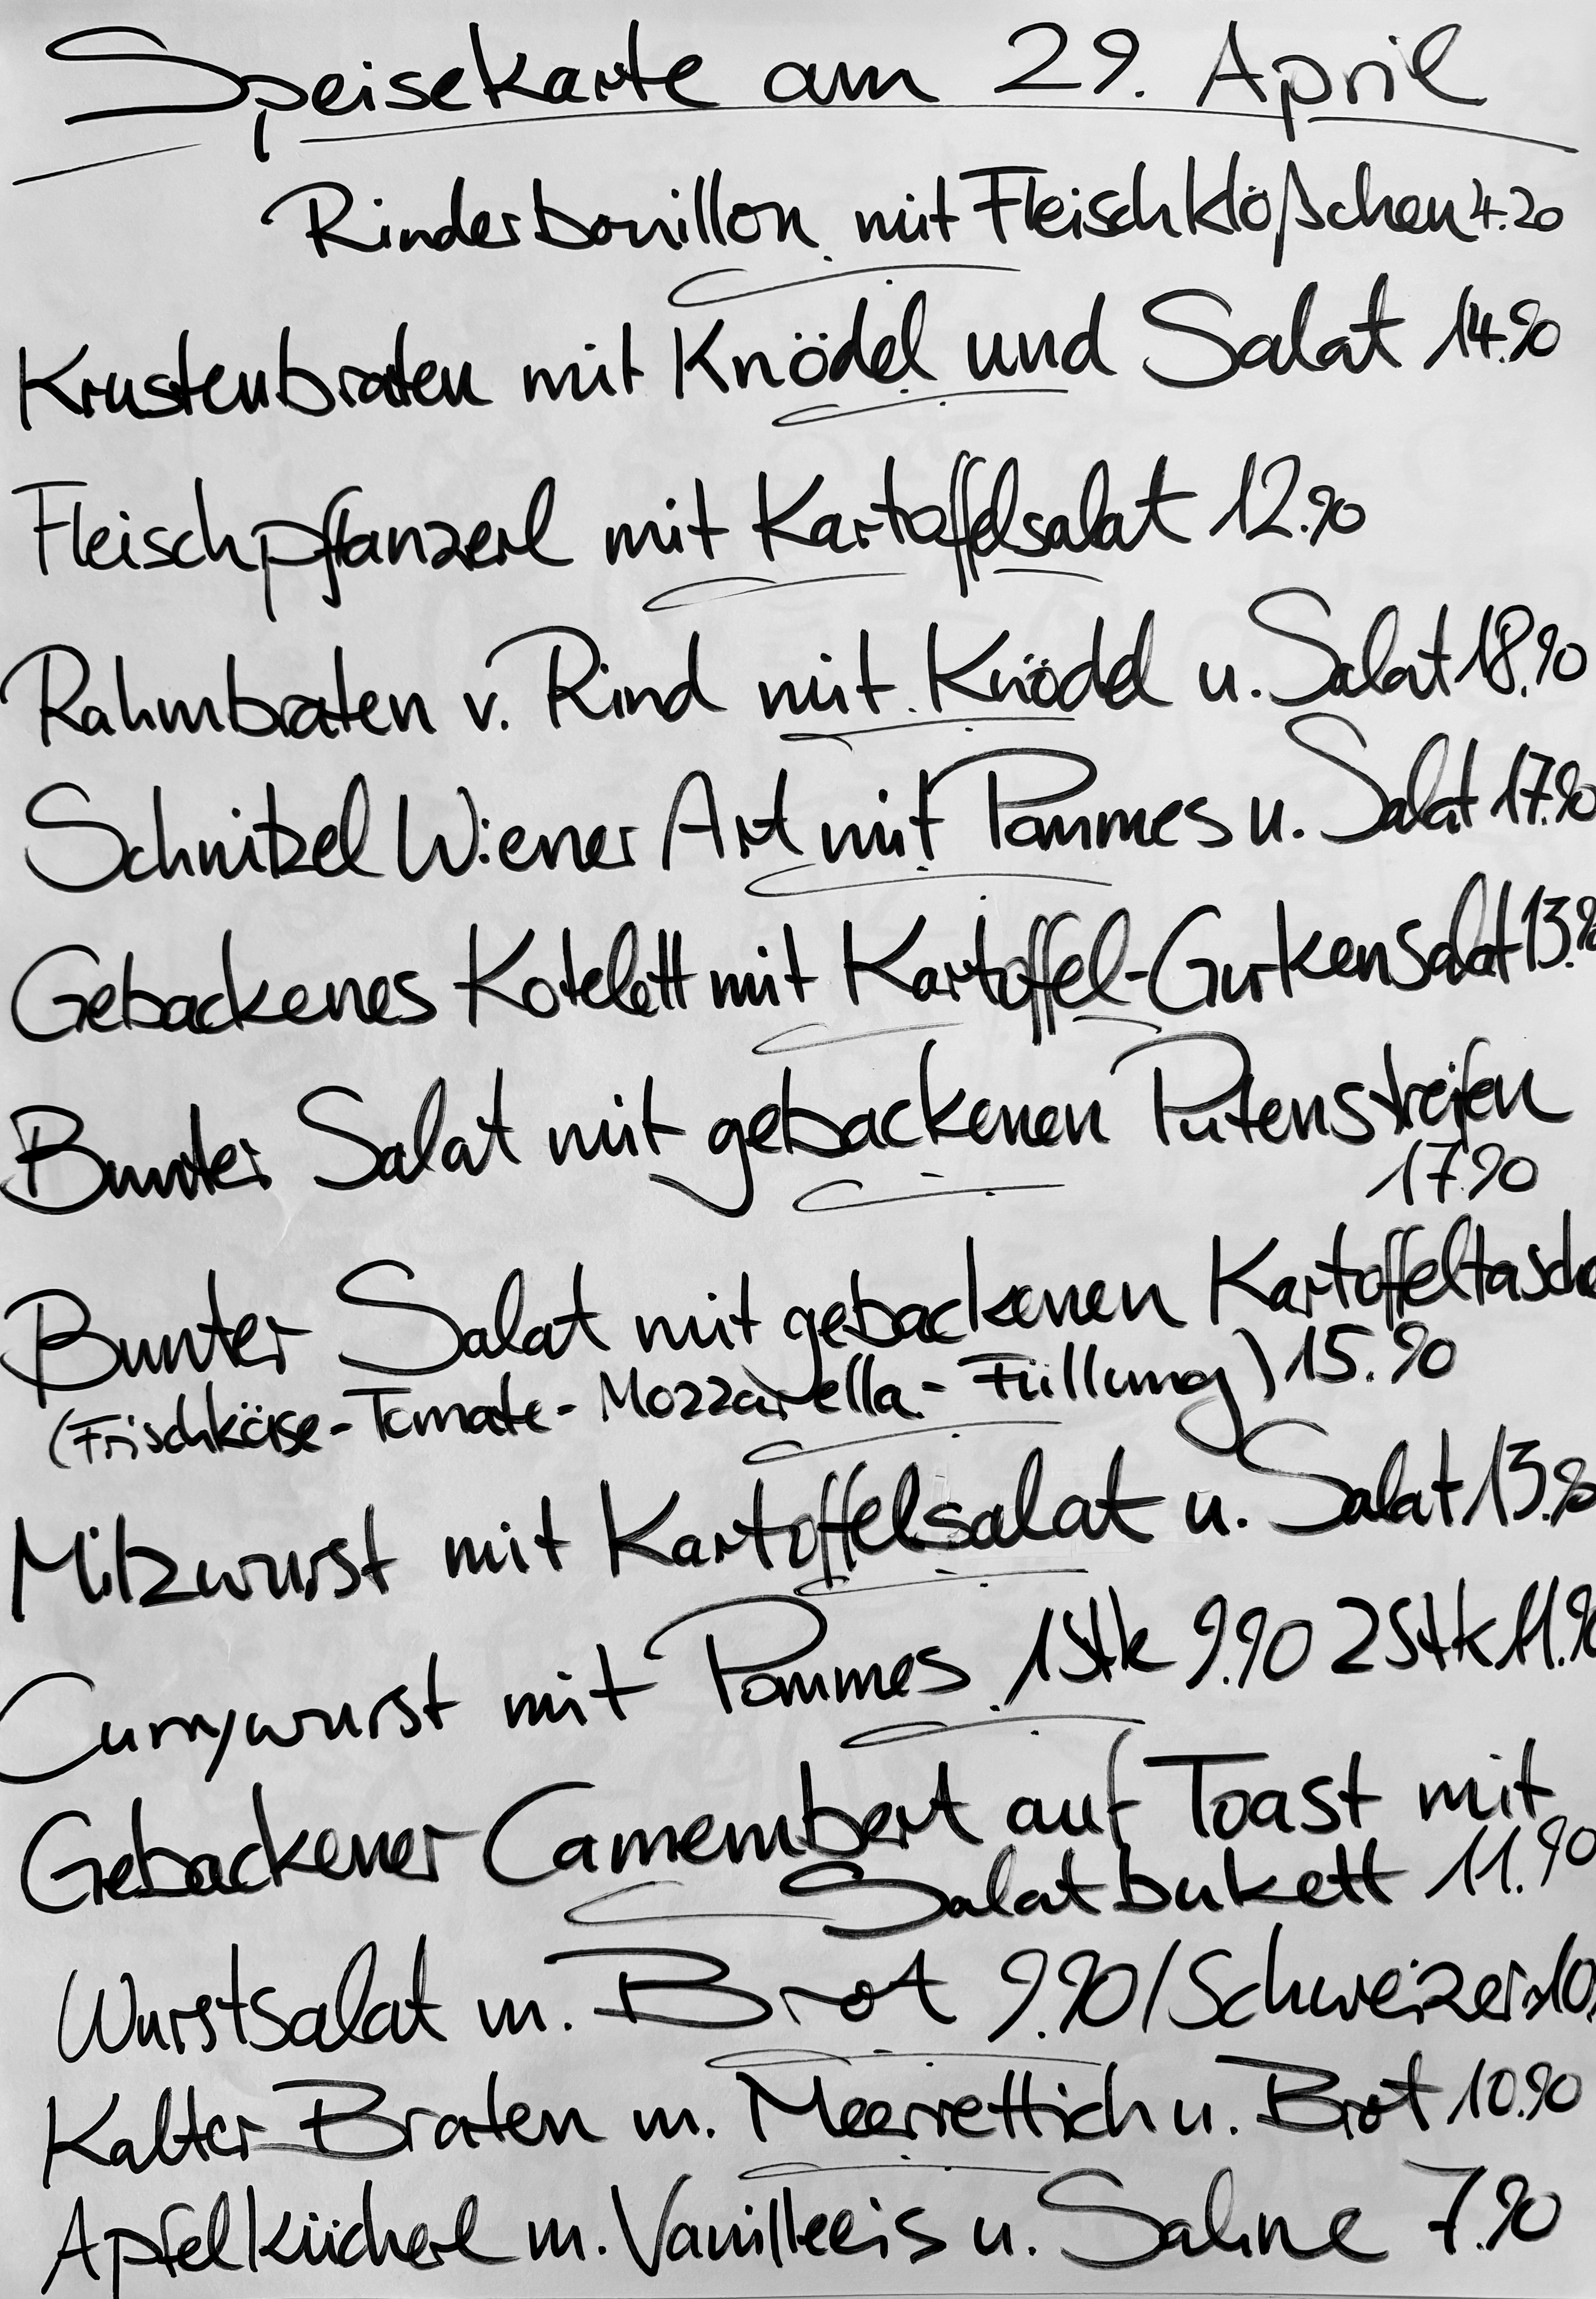 Speisekarte am 29. April
Rinderbouillon mit Fleischklößchen 4.20
Krustenbraten mit Knödel und Salat 14.90
Fleischpflanzerl mit Kartoffelsalat 12.90
Rahmbraten v. Rind mit Knödel u. Salat 18.90
Schnitzel Wiener Art mit Pommes u. Salat 17.90
Gebackenes Kotelett mit Kartoffel-Gurkensalat 13.9
Bunter Salat mit gebackenen Putenstreifen
17.90
Bunter Salat mit gebackenen Kartoffeltasche
(Frischkäse-Tomate-Mozzarella-Füllung) 15.90
Milzwurst mit Kartoffelsalat u. Salat 13.90
Currywurst mit Pommes 1Stk 9.90 2Stk 11.90
Gebackener Camembert auf Toast mit
Salatbukett 11.90
Wurstsalat m. Brot 9.90/Schweizer 10.
Kalter Braten m. Meerrettich u. Brot 10.90
Apfelkücherl m. Vanilleeis u. Sahne 7.90